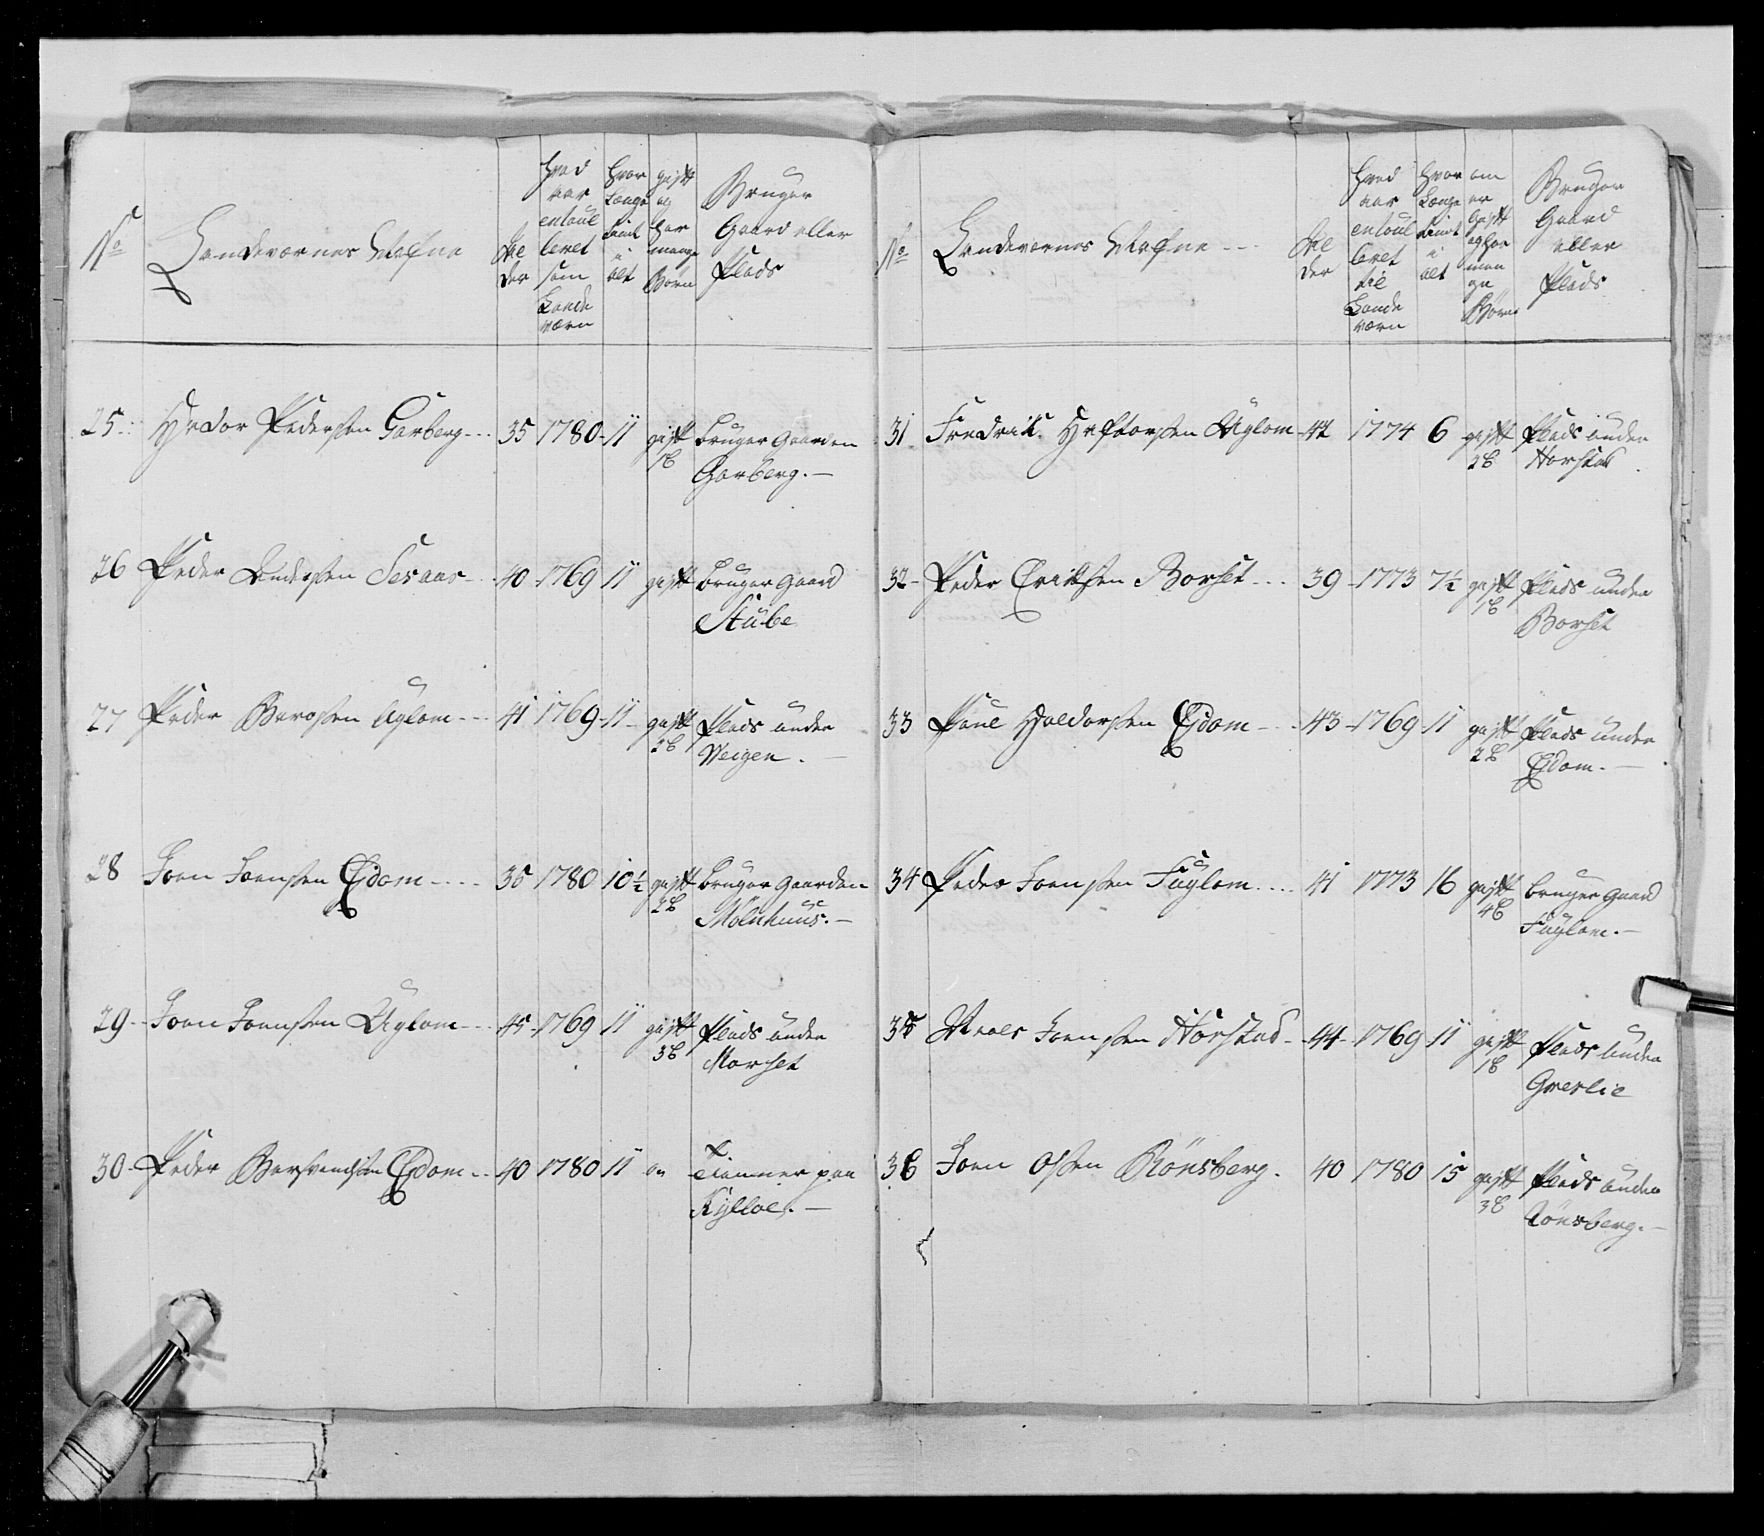 No
Landeværnes Nafne
Al
der
hvad
aar
enroul
leret
som
Lande
værn
hvor
længe
tient
i
alt
gift
og
har
mange
Børn
Bruger
Gaard eller
Plads
25 Pedersen Garberg 35 1780 11 gift bruger Gaarden
1 B Garberg.
26 Peder Andersen 40 1769 11 gift bruger Gaard
Stube
27 Peder Uglom 41 1769 11 gift Plads under
2 B Weigen.
28 Joen Joensen Eidom 35 1780 10½ gift bruger Gaarden
2 B Mølnhuus.
29 Joen Joensen Uglom 45 1769 11 gift Plads under
3 B Morset
30 Peder Eidom 40 1780 11 tienner paa
Kylloe.
No
Landeværnes Nafne
Al
der
hvad
aar
enroul
leret
til
Lande
værn
hvor
længe
tient
i
alt
om
er
gift
og har
man
ge
Børn
Bruger
Gaard
eller
Plads
31 Fredrik Uglom 42 1774 6 gift Plads under
2 B Horstad
32 Peder Eriksen Borset 39 1773 7½ gift Plads under
1 B Borset
33 Poul Haldorsen Eidom 43 1769 11 gift Plads under
2 B Eidom.
34 Peder Joensen Fuglom 41 1773 16 gift bruger Gaard
4 B Fuglom.
35 Joensen Horstad 44 1769 11 gift Plads under
1 B Græslie
36 Joen Olsen Rønsberg 40 1780 15 gift Plads under
3 B Rønsberg.